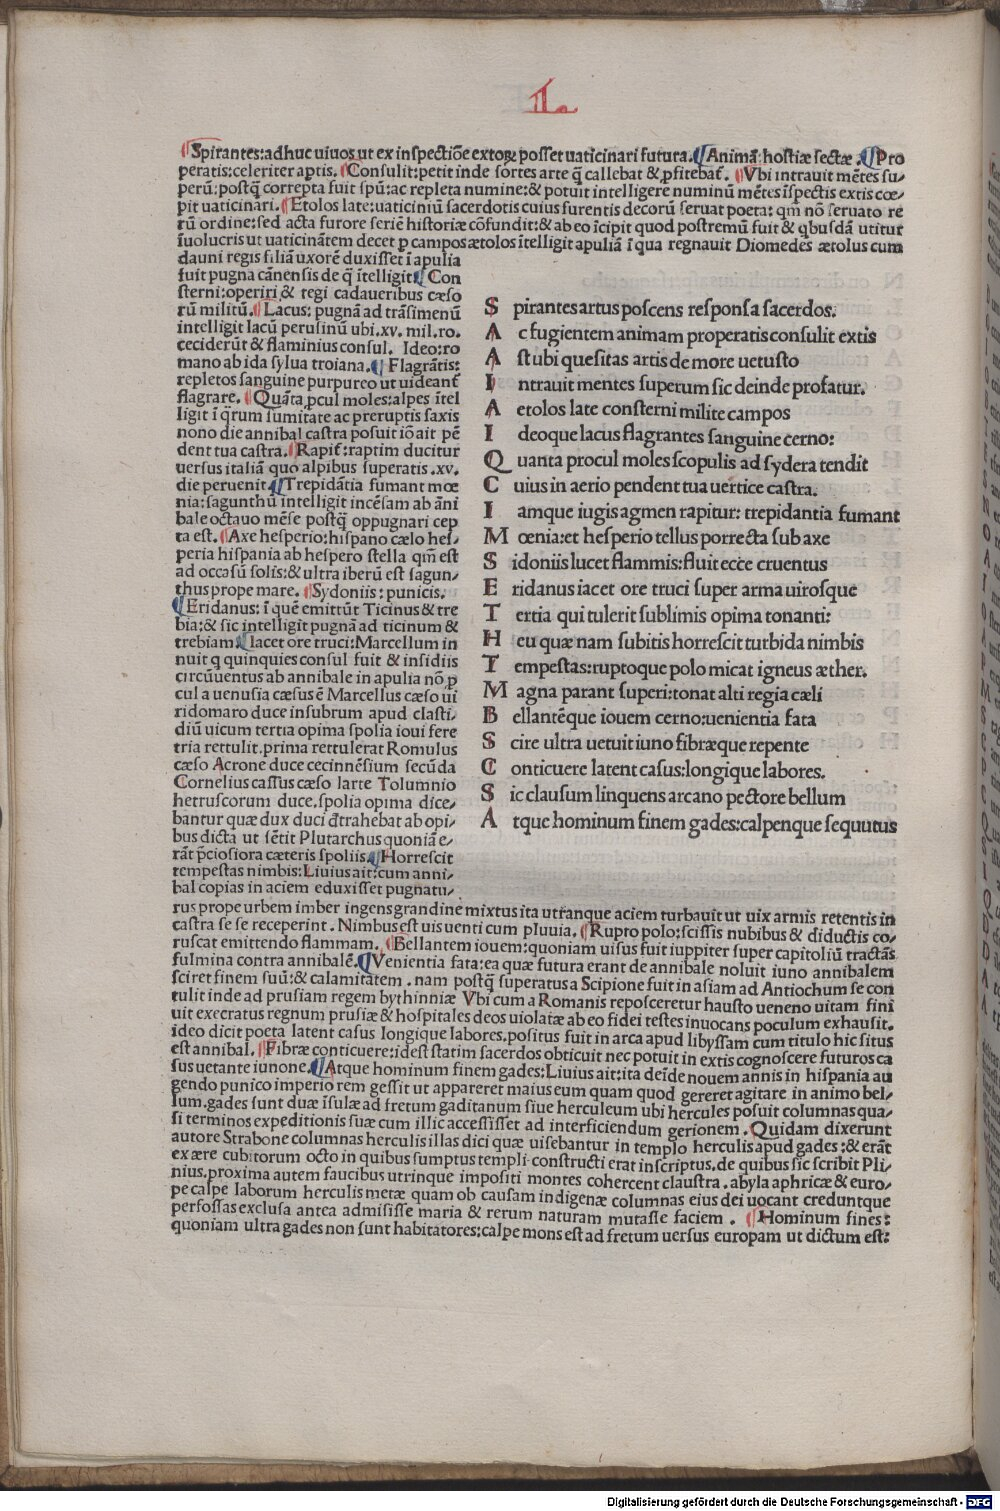 L
¶Spirantes:adhuc uiuos ut ex inspectiõe extoꝝ posset uaticinari futura.¶Animã:hostiæ sectæ.¶Pro
peratis:celeriter aptis.¶Consulit:petit inde sortes arte q̃ callebat & ꝓfitebat̃.¶Vbi intrauit mẽtes su-
perũ:postq̃ correpta fuit spũ:ac repleta numine:& potuit intelligere numinũ mẽtes ĩspectis extis cœ-
pit uaticinari.¶Etolos late:uaticiniũ sacerdotis cuius furentis decorũ seruat poeta: qm̃ nõ seruato re
rũ ordine:sed acta furore seriẽ historiæ cõfundit:& ab eo ĩcipit quod postremũ fuit & qbusdã utitur
ĩuolucris ut uaticinãtem decet ꝑ campos ætolos ĩtelligit apuliã ĩ qua regnauit Diomedes ætolus cum
dauni regis filiã uxorẽ duxisset ĩ apulia
fuit pugna cãnensis de q̃ ĩtelligit¶Con
sterni:operiri & tegi cadaueribus cæso
rũ militũ.¶Lacus: pugnã ad trãsimenũ
intelligit lacũ perusinũ ubi.xv. mil.ro.
ceciderũt & flaminius consul. Ideo:ro
mano ab ida sylua troiana.¶Flagrãtis:
repletos sanguine purpureo ut uideant̃
flagrare.¶Quãta ꝓcul moles:alpes ĩtel
ligit ĩ q̃rum sumitate ac preruptis saxis
nono die annibal castra posuit iõ ait pẽ
dent tua castra.¶Rapit̃:raptim ducitur
uersus italiã quo alpibus superatis.xv.
die peruenit¶Trepidãtia fumant mœ
nia:sagunthũ intelligit incẽsam ab ãni
bale octauo mẽse postq̃ oppugnari cep
ta est.¶Axe hesperio:hispano cælo hes-
peria hispania ab hespero stella qm̃ est
ad occasũ solis:& ultra iberũ est sagun-
thus prope mare.¶Sydoniis:punicis.
¶Eridanus: ĩ quẽ emittũt Ticinus & tre
bia:& sic intelligit pugnã ad ticinum &
trebiam¶Iacet ore truci:Marcellum in
nuit q quinquies consul fuit & insidiis
circũuentus ab annibale in apulia nõ ꝑ
cul a uenusia cæsus ẽ Marcellus cæso ui
ridomaro duce insubrum apud clasti-
diũ uicum tertia opima spolia ioui fere
tria rettulit.prima rettulerat Romulus
cæso Acrone duce cecinnẽsium secũda
Cornelius cassus cæso larte Tolumnio
hetruscorum duce.spolia opima dice-
bantur quæ dux duci d̃trahebat ab opi-
bus dicta ut sẽtit Plutarchus quoniã e-
rãt p̃ciosiora cæteris spoliis.¶Horrescit
tempestas nimbis:Liuius ait:cum anni-
bal copias in aciem eduxisset pugnatu-
rus prope urbem imber ingens grandine mixtus ita utranque aciem turbauit ut uix armis retentis in
castra se se receperint.Nimbus est uis uenti cum pluuia.¶Rupto polo:scissis nubibus & diductis co-
ruscat emittendo flammam.¶Bellantem iouem:quoniam uisus fuit iuppiter super capitoliũ tractãs
fulmina contra annibalẽ.¶Venientia fata:ea quæ futura erant de annibale noluit iuno annibalem
sciret finem suũ:& calamitatem.nam postq̃ superatus a Scipione fuit in asiam ad Antiochum se con
tulit inde ad prusiam regem bythinniæ Vbi cum a Romanis reposceretur hausto ueneno uitam finĩ
uit execratus regnum prusiæ & hospitales deos uiolatæ ab eo fidei testes inuocans poculum exhausit.
ideo dicit poeta latent casus longique labores.positus fuit in arca apud libyssam cum titulo hic situs
est annibal.¶Fibræ conticuere:idest statim sacerdos obticuit nec potuit in extis cognoscere futuros ca
sus uetante iunone.¶Atque hominum finem gades:Liuius ait:ita deĩde nouem annis in hispania au
gendo punico imperio rem gessit ut appareret maius eum quam quod gereret agitare in animo bel-
lum.gades sunt duæ ĩsulæ ad fretum gaditanum siue herculeum ubi hercules posuit columnas qua-
si terminos expeditionis suæ cum illic accessisset ad interficiendum gerionem.Quidam dixerunt
autore Strabone columnas herculis illas dici quæ uisebantur in templo herculis apud gades:& erãt
ex ære cubitorum octo in quibus sumptus templi constructi erat inscriptus.de quibus sic scribit Pli-
nius.proxima autem faucibus utrinque impositi montes cohercent claustra.abyla aphricæ & euro-
pe calpe laborum herculis metæ quam ob causam indigenæ columnas eius dei uocant creduntque
perfossas exclusa antea admisisse maria & rerum naturam mutasse faciem.¶Hominum fines:
quoniam ultra gades non sunt habitatores:calpe mons est ad fretum uersus europam ut dictum est:
S pirantes artus poscens responsa sacerdos.
A c fugientem animam properatis consulit extis
A st ubi quesitas artis de more uetusto
I ntrauit mentes superum sic deinde profatur.
A etolos late consterni milite campos
I deoque lacus flagrantes sanguine cerno:
Q uanta procul moles scopulis ad sydera tendit
C uius in aerio pendent tua uertice castra.
I amque iugis agmen rapitur: trepidantia fumant
M œnia:et hesperio tellus porrecta sub axe
S idoniis lucet flammis:fluit ecce cruentus
E ridanus iacet ore truci super arma uirosque
T ertia qui tulerit sublimis opima tonanti:
H eu quæ nam subitis horrescit turbida nimbis
T empestas:ruptoque polo micat igneus æther.
M agna parant superi:tonat alti regia cæli
B ellantẽque iouem cerno:uenientia fata
S cire ultra uetuit iuno fibræque repente
C onticuere latent casus:longique labores.
S ic clausum linquens arcano pectore bellum
A tque hominum finem gades:calpenque sequutus
Digitalisierung gefördert durch die Deutsche Forschungsgemeinschaft - DFG